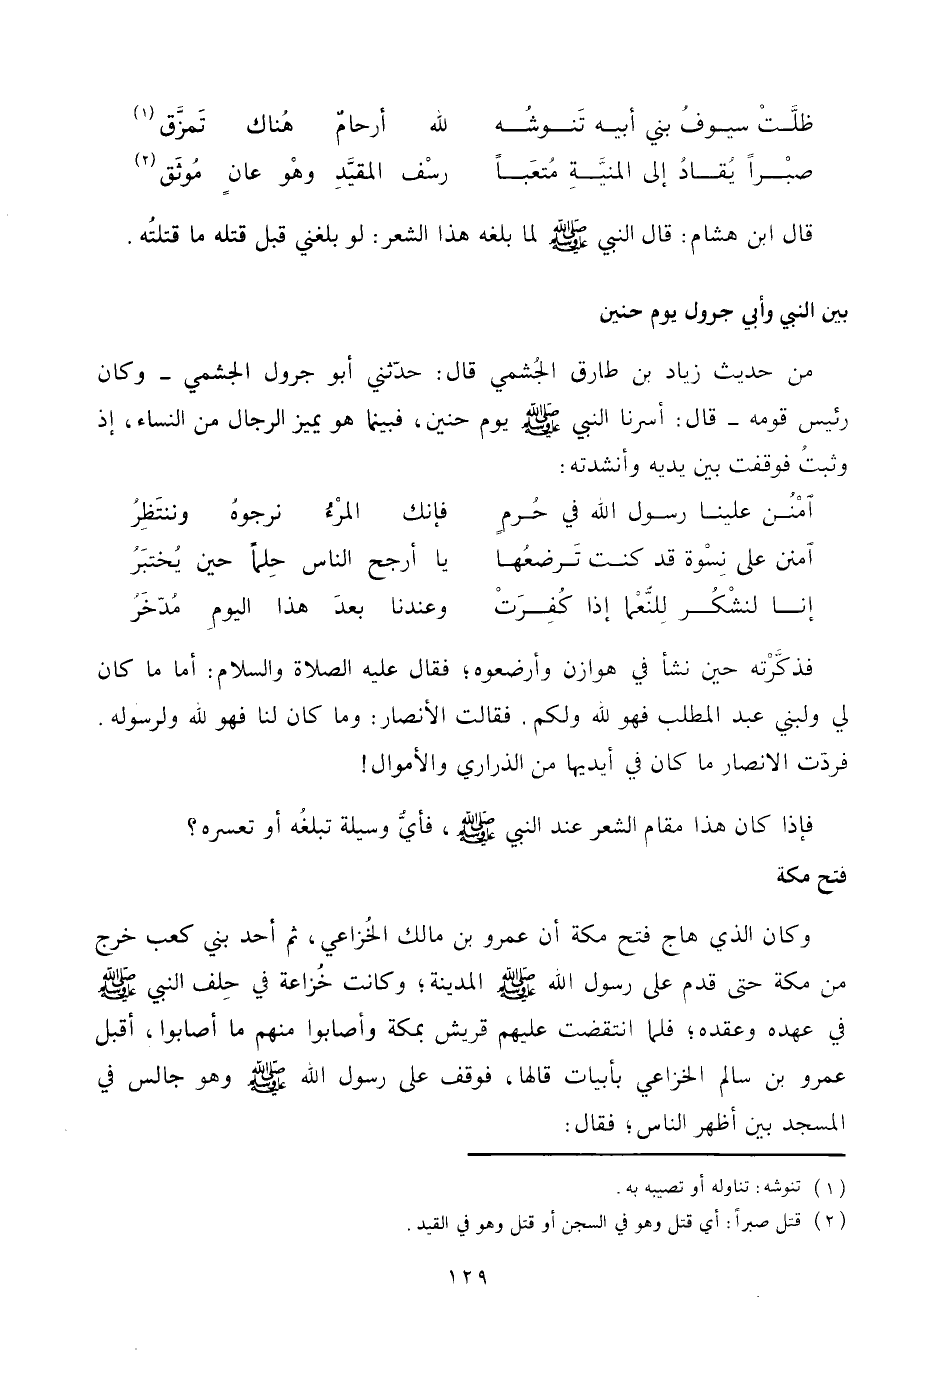 ظلَّتْ سيوفُ بني أبيه تَنوشُه لله أرحامٌ هُناك تَمزَّق (١)
صبْراً يُقادُ إلى المنيَّةِ مُتعَباً رسْف المقيَّدِ وهْو عانٍ مُوثَق (٢)
قال ابن هشام: قال النبي ﷺ لما بلغه هذا الشعر: لو بلغني قبل قتله ما قتلتُه.
بين النبي وأبي جرول يوم حنين
من حديث زياد بن طارق الجُشمي قال: حدّثني أبو جرول الجشمي - وكان
رئيس قومه - قال: أسرنا النبي ﷺ يوم حنين، فبينما هو يميز الرجال من النساء، إذ
وثبتُ فوقفت بين يديه وأنشدته:
آمْنُن علينا رسول الله في حُرمٍ فإنك المرْءُ نرجوهُ وننتَظِرُ
آمنن على نِسْوة قد كنت تَرضعُها يا أرجح الناس حِلماً حين يُختبَرُ
إنا لنشْكُر لِلنُّعْما إذا كُفِرَتْ وعندنا بعدَ هذا اليومِ مُدّخَرُ
فذكَّرْته حين نشأ في هوازن وأرضعوه؛ فقال عليه الصلاة والسلام: أما ما كان
لي ولبني عبد المطلب فهو لله ولكم. فقالت الأنصار: وما كان لنا فهو لله ولرسوله.
فردّت الانصار ما كان في أيديها من الذراري والأموال!
فإذا كان هذا مقام الشعر عند النبي ﷺ، فأيُّ وسيلة تبلغُه أو تعسره؟
فتح مكة
وكان الذي هاج فتح مكة أن عمرو بن مالك الخُزاعي، ثم أحد بني كعب خرج
من مكة حتى قدم على رسول الله ﷺ المدينة؛ وكانت خُزاعة في حِلف النبي ﷺ
في عهده وعقده؛ فلما انتقضت عليهم قريش بمكة وأصابوا منهم ما أصابوا، أقبل
عمرو بن سالم الخزاعي بأبيات قالها، فوقف على رسول الله ﷺ وهو جالس في
المسجد بين أظهر الناس؛ فقال:
(١) تنوشه: تناوله أو تصيبه به.
(٢) قتل صبراً: أي قتل وهو في السجن أو قتل وهو في القيد.
١٢٩